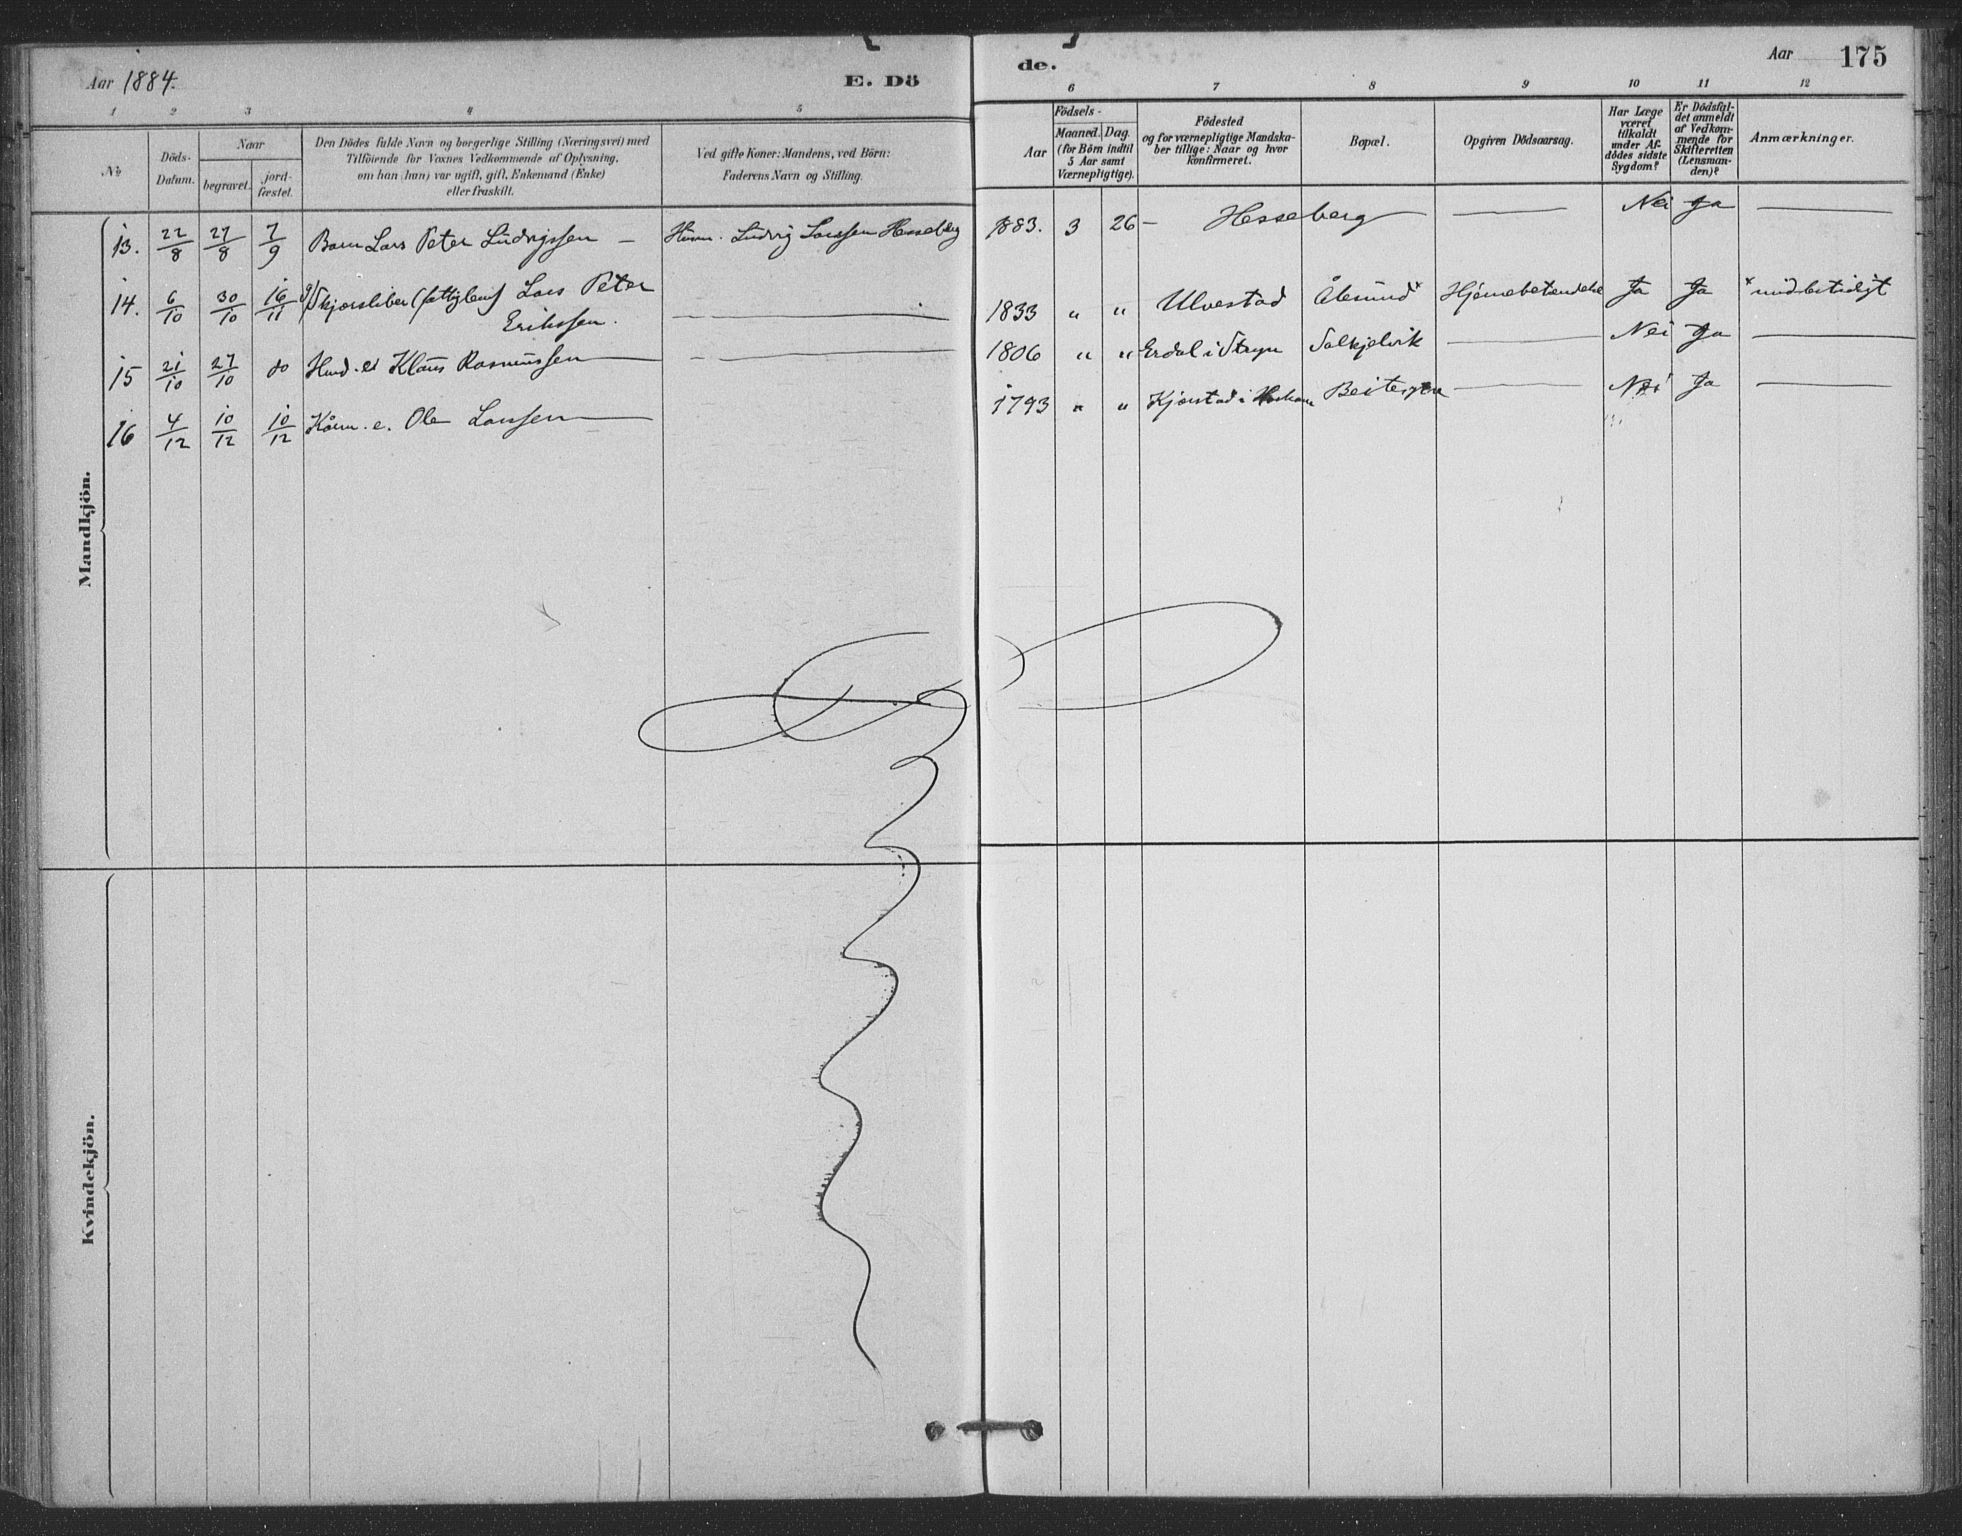 Aar 1884.
E. Dö
de.
Aar
175
1 2 3 4 5
6 7 8 9 10 11 12
No
Döds-
Datum.
Naar
begravet.
jord-
fæstet.
Den Dödes fulde Navn og borgerlige Stilling (Næringsvei) med
Tilföiende for Voxnes Vedkommende af Oplysning,
om han (hun) var ugift, gift, Enkemand (Enke)
eller fraskilt.
Ved gifte Koner: Mandens, ved Börn:
Faderens Navn og Stilling.
Födsels-
Aar
Maaned. Dag.
(for Börn indtil
5 Aar samt
Værnepligtige).
Födested
og for værnepligtige Mandska-
ber tillige: Naar og hvor
konfirmeret.
Bopæl.
Opgiven Dödsaarsag.
Har Læge
været
tilkaldt
under Af-
dödes sidste
Sygdom?
Er Dödsfal-
det anmeldt
af Vedkom-
mende for
Skifteretten
(Lensman-
den)?
Anmærkninger.
Mandkjön.
13. 22/8 27/8 7/9 Barn Lars Peter Ludvigssen — Huusm. Ludvig Larssen Hesseberg 1883. 3 26 — Hesseberg — Nei Ja —
14. 6/10 30/10 16/11 g/ Skjærsliber (fattiglem) Lars Peter
Erikssen. — 1833 " " Ulvestad Ålesund* Hjernebetændelse Ja Ja * midlertidigt
15 21/10 27/10 do Klaus Rasmussen — 1806 " " Erdal i Stryn Solkjelvik — Nei Ja —
16 4/12 10/12 10/12 Kaarm. e. Ole Larssen — 1793 " " Kjærstad i Beite — Nei Ja —
Kvindekjön.